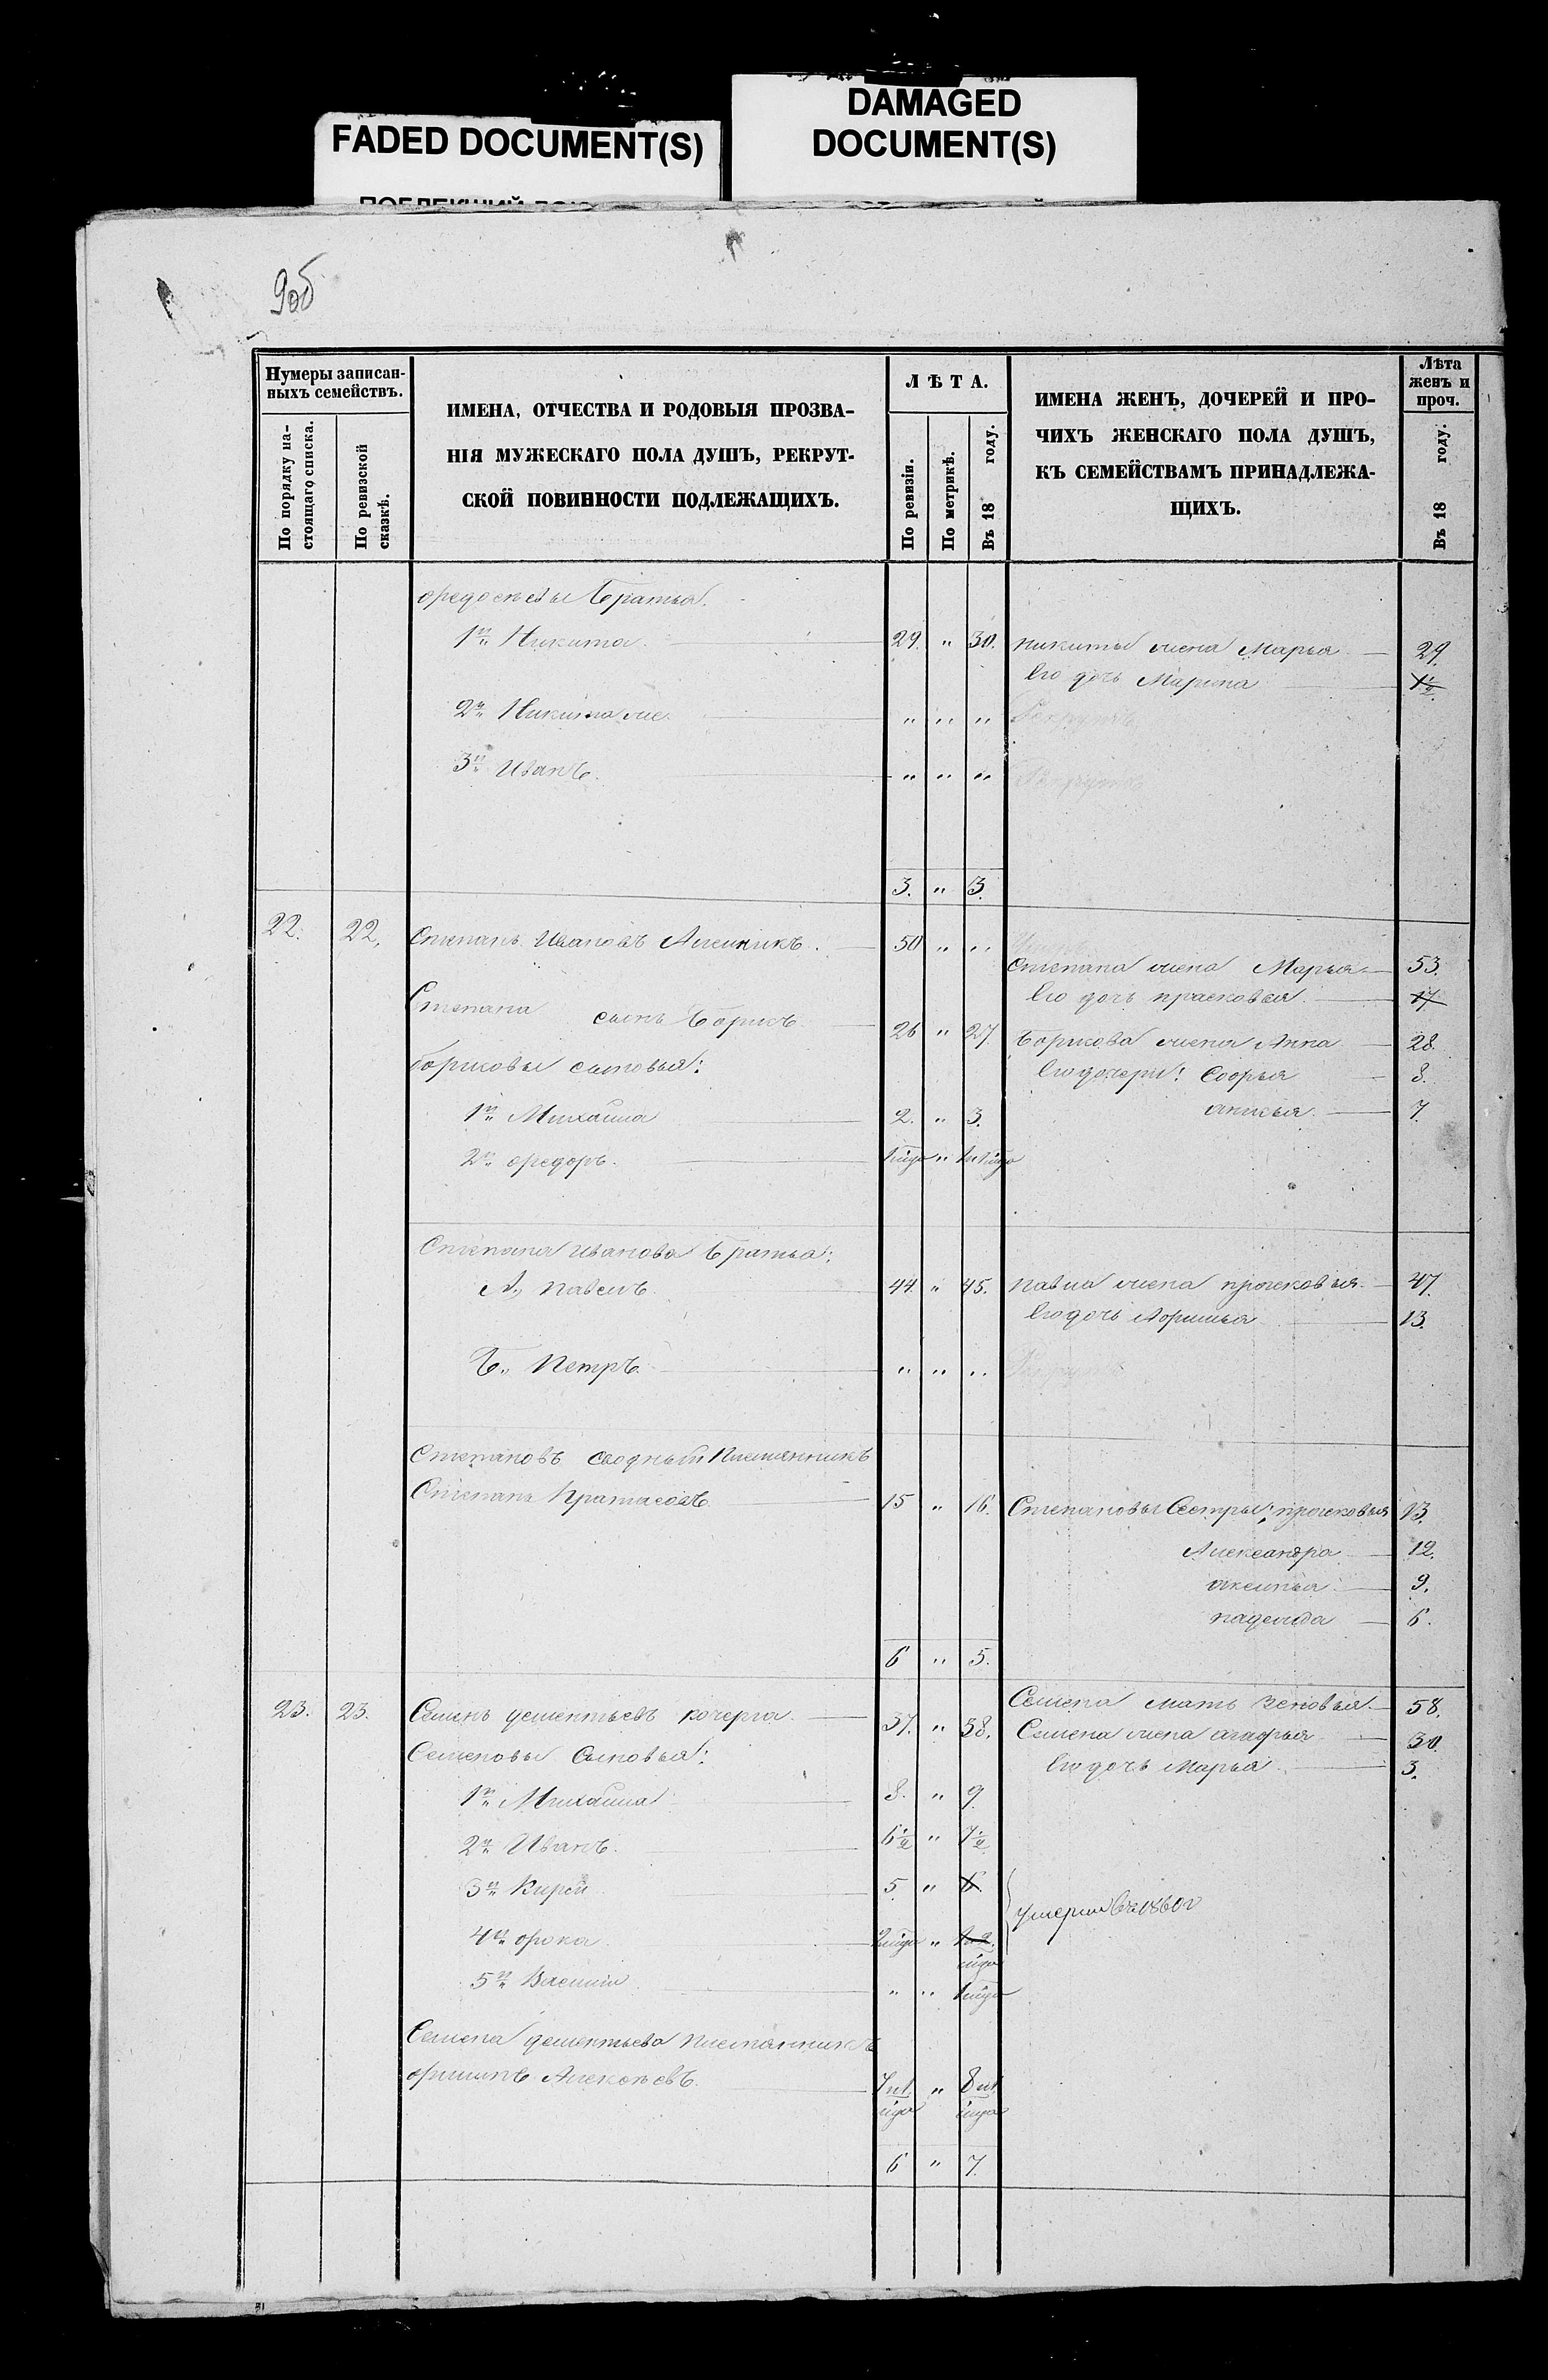 FADED DOCUMENT(S)
DAMAGED
DOCUMENT(S)
9об
Нумеры записан-
ныхъ семействъ.
По порядку на-
стоящаго списка.
По ревизской
сказкѣ.
ИМЕНА, ОТЧЕСТВА И РОДОВЫЯ ПРОЗВА-
НІЯ МУЖЕСКАГО ПОЛА ДУШЪ, РЕКРУТ-
СКОЙ ПОВИННОСТИ ПОДЛЕЖАЩИХЪ.
ЛѢТА.
По ревизіи.
По метрикѣ.
Въ 18 году.
ИМЕНА ЖЕНЪ, ДОЧЕРЕЙ И ПРО-
ЧИХЪ ЖЕНСКАГО ПОЛА ДУШЪ,
КЪ СЕМЕЙСТВАМЪ ПРИНАДЛЕЖА-
ЩИХЪ.
Лѣта
женъ и
проч.
Въ 18 году.
братья.
1й Никита 29. " 30. Никиты жена Марья 29.
Его дочь Марина 1½
2й Никита же " " " Рекрутъ
3й Иванъ. " " " Рекрутъ
3. " 3.
22. 22. Степанъ Ивановъ 50 " "
Степана жена Марья 53.
Его дочь прасковья 17
Степана сынъ борисъ 26 " 27 борисова жена Анна 28.
борисовы сыновья: Его дочери: Софья 8.
1й Михайла 2. " 3. анисья 7.
2й федоръ.
Степана Иванова братья:
А., павелъ 44. " 45. павла жена просковья 47.
Его дочь 13.
Б., Петръ " " "
Степановъ сводный племянникъ
Степанъ 15 " 16. Степановы Сестры: просковья 13.
Александра 12.
аксинья 9.
надежда 6.
6 " 5.
23. 23. Семенъ дементьевъ кочерга 37. " 38.
Семена мать Зеновья 58.
Семена жена агафья 30.
Семеновы Сыновья: Его дочь Марья 3.
1й Михайла 8. " 9
2й Иванъ. 6½ " 7½
3й Кирей 5. " 6. умерли въ 1860 г
4й фока
5й Василій
Семена дементьева племянникъ
филипъ Алексѣевъ.
6 " 7.